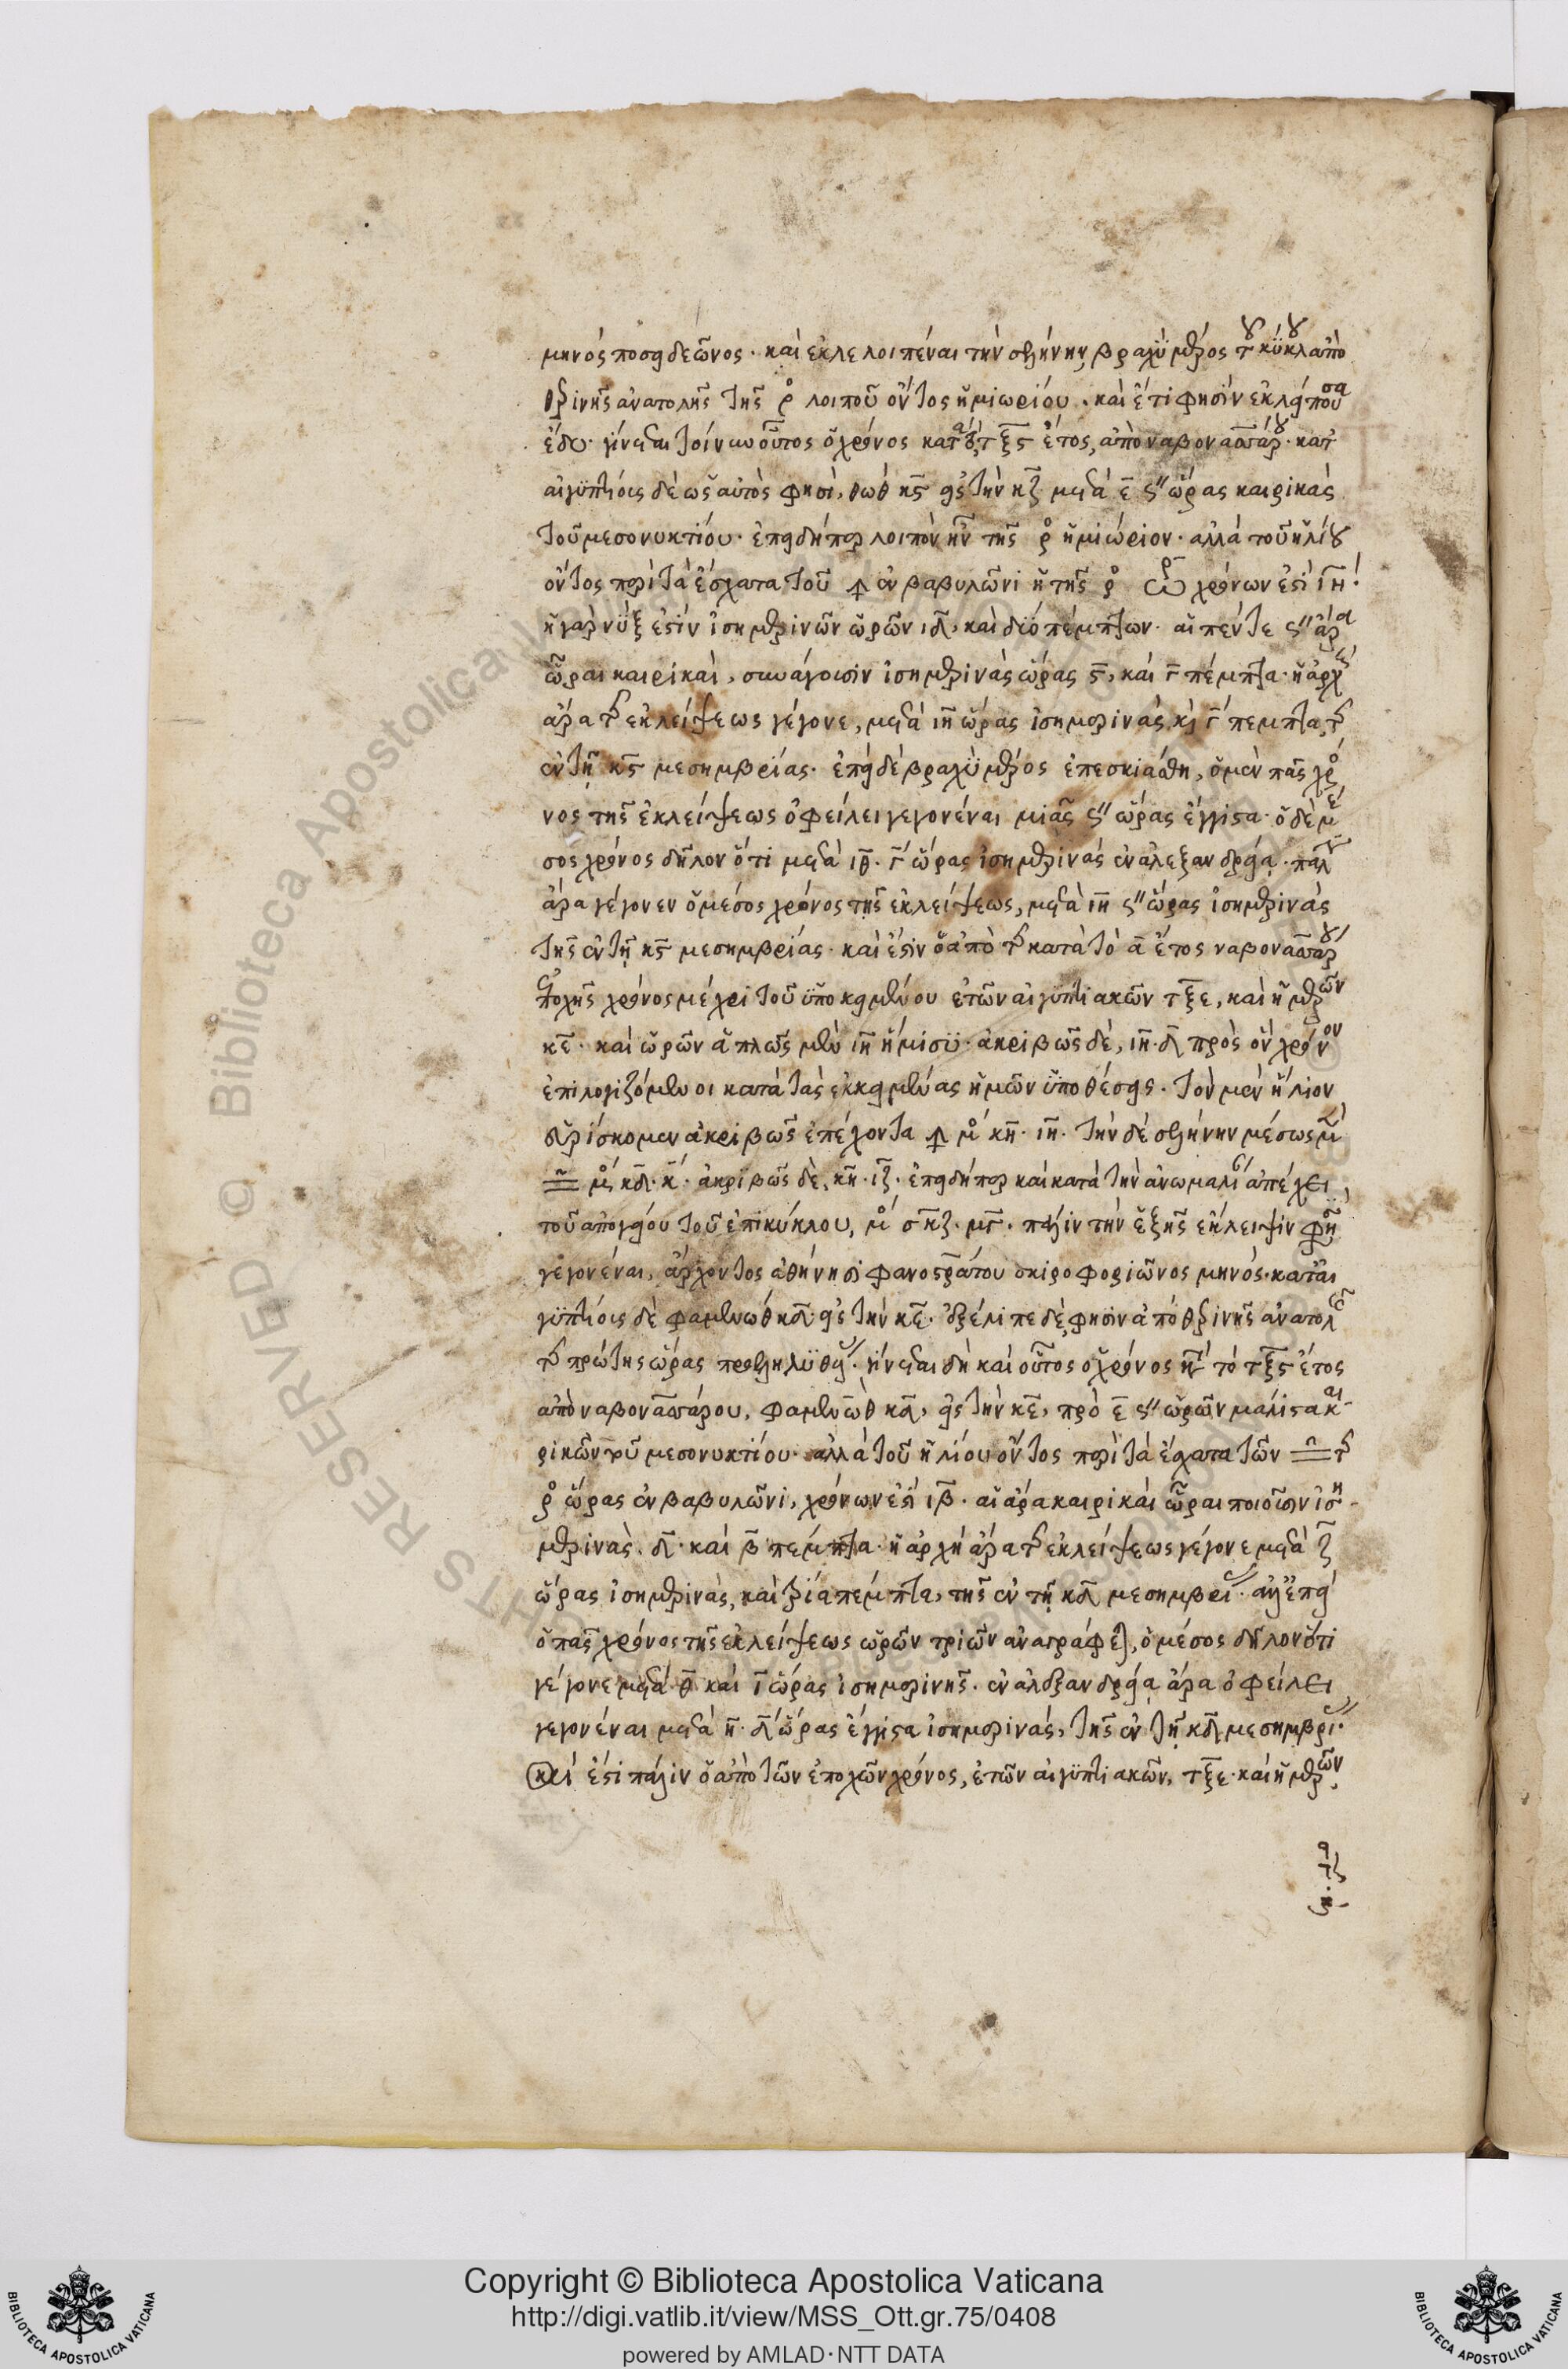 μηνός ποσειδεῶνος. καὶ ἐκλελοιπέναι τὴν σελήνην βραχὺ μέρος τοῦ κύκλου ἀπὸ
θερινῆς ἀνατολῆς τῆς νυκτὸς λοιποῦ ὄντος ἡμιωρίου. καὶ ἔτι φησὶν ἐκλείπουσα
ἔδυ. γίνεται τοίνυν οὗτος ὁ χρόνος κατὰ τὸ τξς ἔτος, ἀπὸ ναβονασσάρου. κατ
αἰγυπτίοις δὲ ὡς αὐτὸς φησὶ, θωθ κς εἰς τὴν κζ μετὰ ε ς″ ὥρας καιρικὰς
τοῦ μεσονυκτίου. ἐπειδήπερ λοιπὸν ἦν τῆς νυκτὸς ἡμιώριον. ἀλλὰ τοῦ ἡλίου
ὄντος περὶ τὰ ἔσχατα τοῦ ♐ ἐν βαβυλῶνι ἡ τῆς νυκτὸς ὥρα χρόνων ἐστὶ ιη
ἡ γὰρ νὺξ ἐστὶν ἰσημερινῶν ὡρῶν ιδ, καὶ δύο πέμπτων. αἱ πέντε ς″ ἄρα
ὧραι καιρικαὶ, συνάγουσιν ἰσημερινὰς ὥρας ς, καὶ γ πέμπτα. ἡ ἀρχὴ
ἄρα τῆς ἐκλείψεως γέγονε, μετὰ ιη ὥρας ἰσημερινὰς κὶ γ πέμπτα τῆς
ἐν τῇ κς μεσημβρίας. ἐπεὶ δὲ βραχὺ μέρος ἐπεσκιάσθη, ὁ μὲν πᾶς χρό
νος τῆς ἐκλείψεως ὀφείλει γεγονέναι μιᾶς ς″ ὥρας ἔγγιστα. ὁ δὲ μέ
σος χρόνος δῆλον ὅτι μετὰ ιθ. γ ὥρας ἰσημερινὰς ἐν ἀλεξανδρείᾳ. πάλιν
ἄρα γέγονεν ὁ μέσος χρόνος τῆς ἐκλείψεως, μετὰ ιη ς″ ὥρας ἰσημερινὰς
τῆς ἐν τῇ κς μεσημβρίας. καὶ ἔστιν ὁ ἀπὸ τῆς κατὰ τὸ α ἔτος ναβονασσάρου
ἐποχῆς χρόνος μέχρι τοῦ ὑποκειμένου ἐτῶν αἰγυπτιακῶν τξε, καὶ ἡμερῶν
κε. καὶ ὡρῶν ἁπλῶς μὲν ιη ἥμισυ. ἀκριβῶς δὲ, ιη. δ πρὸς ὃν χρόνον
ἐπιλογιζόμενοι κατὰ τὰς ἐκκειμένας ἡμῶν ὑποθέσεις. τὸν μὲν ἥλιον
εὑρίσκομεν ἀκριβῶς ἐπέχοντα ♐ μο κη. ιη. τὴν δὲ σελήνην μέσως μὲν
♊ μο κδ. κ. ἀκριβῶς δὲ, κη. ιζ. ἐπειδήπερ καὶ κατὰ τὴν ἀνωμαλίαν ἀπέχει
τοῦ ἀπογείου τοῦ ἐπικύκλου, μο σκζ. μγ. πάλιν τὴν ἑξῆς ἔκλειψιν φησὶ
γεγονέναι, ἄρχοντος ἀθήνησι φανοστράτου σκιροφοριῶνος μηνός. κατ αἰ
γυπτίοις δὲ φαμενὼθ κδ εἰς τὴν κε. ἐξέλιπε δὲ, φησὶν ἀπὸ θερινῆς ἀνατολῆς
τῆς πρώτης ὥρας προεληλυθυίας. γίνεται δὴ καὶ οὗτος ὁ χρόνος κατὰ τὸ τξς ἔτος
ἀπὸ ναβονασσάρου, φαμενὼθ κδ, εἰς τὴν κε, πρὸ ε ς″ ὡρῶν μάλιστα και
ρικῶν τοῦ μεσονυκτίου. ἀλλὰ τοῦ ἡλίου ὄντος περὶ τὰ ἔσχατα τῶν ♊ τῆς
νυκτὸς ὥρας ἐν βαβυλῶνι, χρόνων ἐστὶ ιβ. αἱ ἄρα καιρικαὶ ὧραι ποιοῦσιν ἰση
μερινὰς. δ. καὶ β πέμπτα. ἡ ἀρχὴ ἄρα τῆς ἐκλείψεως γέγονε μετὰ ζ
ὥρας ἰσημερινὰς, καὶ τρία πέμπτα, τῆς ἐν τῇ κδ μεσημβρίας. ἐπεὶ
ὁ πᾶς χρόνος τῆς ἐκλείψεως ὡρῶν τριῶν ἀναγράφεται, ὁ μέσος δῆλον ὅτι
γέγονε μετὰ θ καὶ ι ὥρας ἰσημερινῆς. ἐν ἀλεξανδρείᾳ ἄρα ὀφείλει
γεγονέναι μετὰ η. δ ὥρας ἔγγιστα ἰσημερινὰς, τῆς ἐν τῇ κδ μεσημβρίας.
καὶ ἔστι πάλιν ὁ ἀπὸ τῶν ἐποχῶν χρόνος, ἐτῶν αἰγυπτιακῶν, τξε. καὶ ἡμερῶν
Copyright © Biblioteca Apostolica Vaticana
http://digi.vatlib.it/view/MSS_Ott.gr.75/0408
powered by AMLAD·NTT DATA